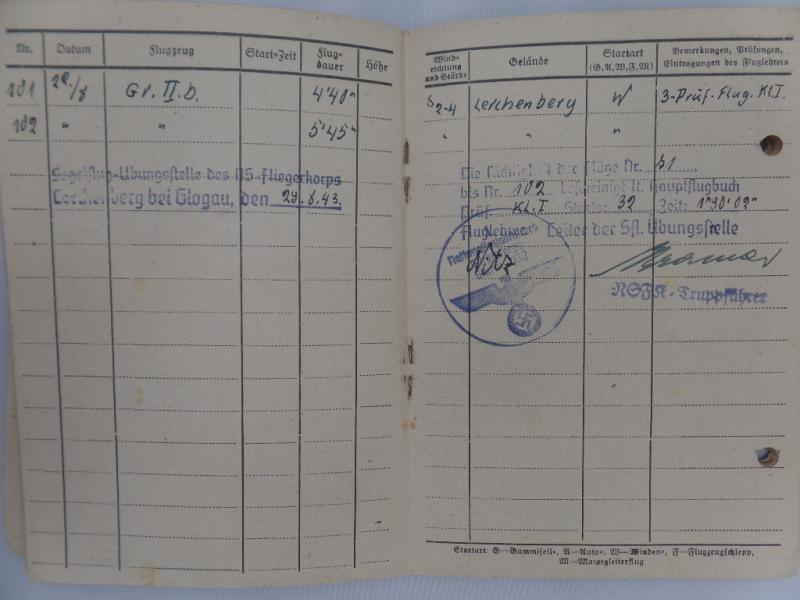 Nr. Datum Flugzeug Start-Zeit Flug-dauer Höhe
101 28./8 Gr. II.b. 4'40"
102 " " 5'45"
Segelflug-Übungsstelle des NS-Fliegerkorps
Lerchenberg bei Glogau, den 29.8.43.
Wind-richtung und Stärke Gelände Startart (G,A,W,F,M) Bemerkungen, Prüfungen, Eintragungen des Fluglehrers
S 2-4 Lerchenberg W 3-Prüf.-Flug. Kl.I.
" " "
Die Richtigkeit der Flüge Nr. 71
bis Nr. 102 bescheinigt lt. Hauptflugbuch
Prüf. Kl.I Starts: 32 Zeit: 1°30'02"
Fluglehrer Leiter der Sfl. Übungsstelle
Nationalsozialistisches
NSFK-Truppführer
Startart: G—Gummiseil-, A—Auto-, W—Winden-, F—Flugzeugschlepp,
M—Motorgleiterflug